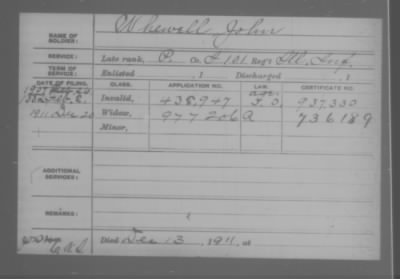 NAME OF SOLDIER: Whewall, John
SERVICE: Late rank, P. Co. I, 101 Reg't Ill. Inf.
TERM OF SERVICE: Enlisted , 1 Discharged , 1
DATE OF FILING. CLASS. APPLICATION NO. LAW. CERTIFICATE NO.
Invalid, 438,947 937,330
1911 Dec 20 Widow, 977206 736189
Minor,
ADDITIONAL SERVICES:
REMARKS:
Died Dec 13, 1911, at